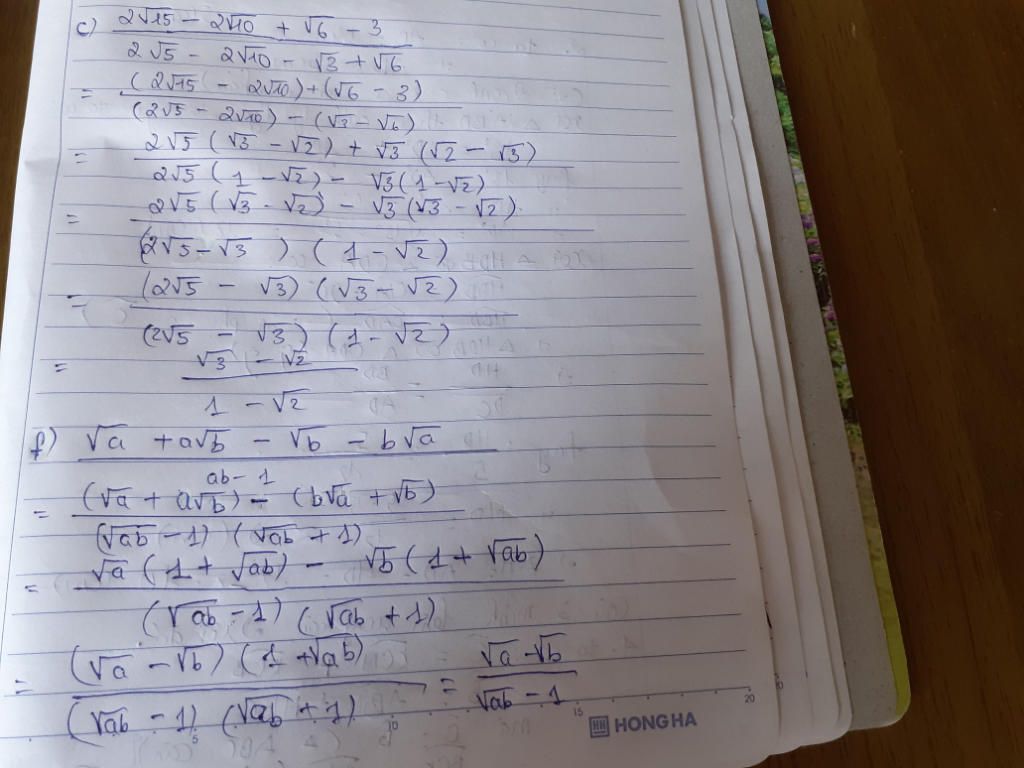 c) 2√15 - 2√10 + √6 - 3
2√5 - 2√10 - √3 + √6
= (2√15 - 2√10) + (√6 - 3)
(2√5 - 2√10) - (√3 - √6)
= 2√5 (√3 - √2) + √3 (√2 - √3)
2√5 (1 - √2) - √3 (1 - √2)
= 2√5 (√3 - √2) - √3 (√3 - √2)
(2√5 - √3) (1 - √2)
= (2√5 - √3) (√3 - √2)
(2√5 - √3) (1 - √2)
= √3 - √2
1 - √2
f) √a + a√b - √b - b√a
ab - 1
= (√a + a√b) - (b√a + √b)
(√ab - 1) (√ab + 1)
= √a (1 + √ab) - √b (1 + √ab)
(√ab - 1) (√ab + 1)
= (√a - √b) (1 + √ab) = √a - √b
(√ab - 1) (√ab + 1) √ab - 1
5 10 15 20
HONG HA